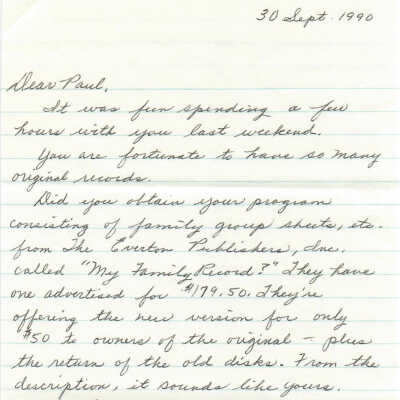 30 Sept. 1990
Dear Paul,
It was fun spending a few
hours with you last weekend.
You are fortunate to have so many
original records.
Did you obtain your program
consisting of family group sheets, etc.
from The Everton Publishers, Inc.
called "My Family Record?" They have
one advertised for $179.50. They're
offering the new version for only
$50 to owners of the original - plus
the return of the old disks. From the
description, it sounds like yours.